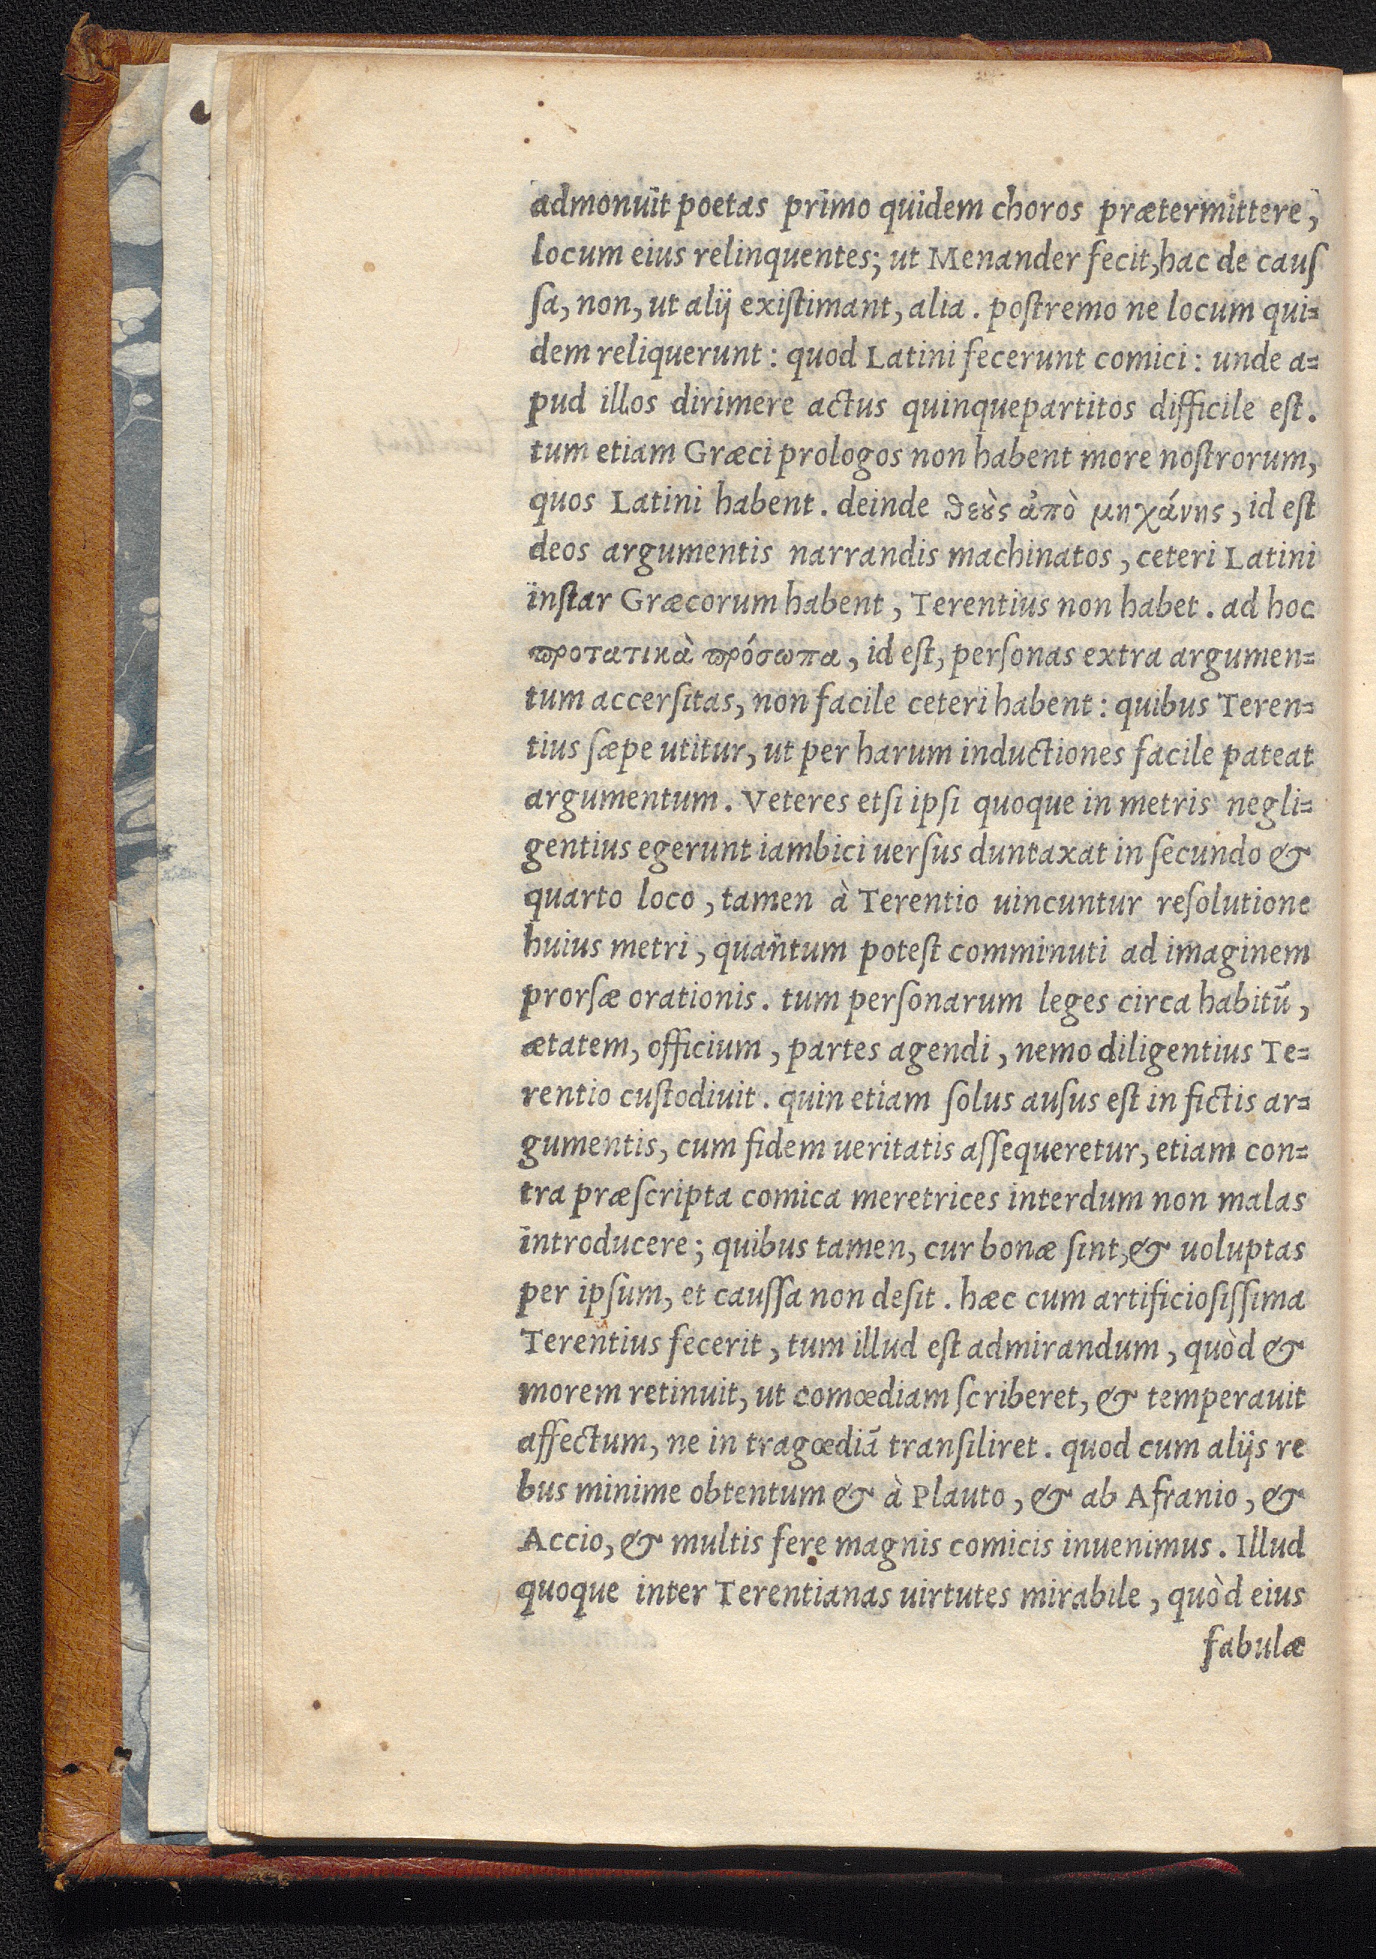 admonuit poetas primo quidem choros prætermittere,
locum eius relinquentes; ut Menander fecit, hac de cauſ
ſa, non, ut alij exiſtimant, alia. poſtremo ne locum qui=
dem reliquerunt: quod Latini fecerunt comici: unde a=
pud illos dirimere actus quinquepartitos difficile eſt.
tum etiam Græci prologos non habent more noſtrorum,
quos Latini habent. deinde θεȣ̀ς ἀπὸ μηχάνης, id eſt
deos argumentis narrandis machinatos, ceteri Latini
inſtar Græcorum habent, Terentius non habet. ad hoc
ϖροτατικὰ ϖρόσωπα, id eſt, perſonas extra argumen=
tum accerſitas, non facile ceteri habent: quibus Teren=
tius ſæpe utitur, ut per harum inductiones facile pateat
argumentum. Veteres etſi ipſi quoque in metris negli=
gentius egerunt iambici uerſus duntaxat in ſecundo &
quarto loco, tamen à Terentio uincuntur reſolutione
huius metri, quantum poteſt comminuti ad imaginem
prorſæ orationis. tum perſonarum leges circa habitū,
ætatem, officium, partes agendi, nemo diligentius Te=
rentio cuſtodiuit. quin etiam ſolus auſus eſt in fictis ar=
gumentis, cum fidem ueritatis aſſequeretur, etiam con=
tra præſcripta comica meretrices interdum non malas
introducere; quibus tamen, cur bonæ ſint, & uoluptas
per ipſum, et cauſſa non deſit. hæc cum artificioſiſſima
Terentius fecerit, tum illud eſt admirandum, quòd &
morem retinuit, ut comœdiam ſcriberet, & temperauit
affectum, ne in tragœdiā tranſiliret. quod cum alijs re
bus minime obtentum & à Plauto, & ab Afranio, &
Accio, & multis fere magnis comicis inuenimus. Illud
quoque inter Terentianas uirtutes mirabile, quòd eius
fabulæ